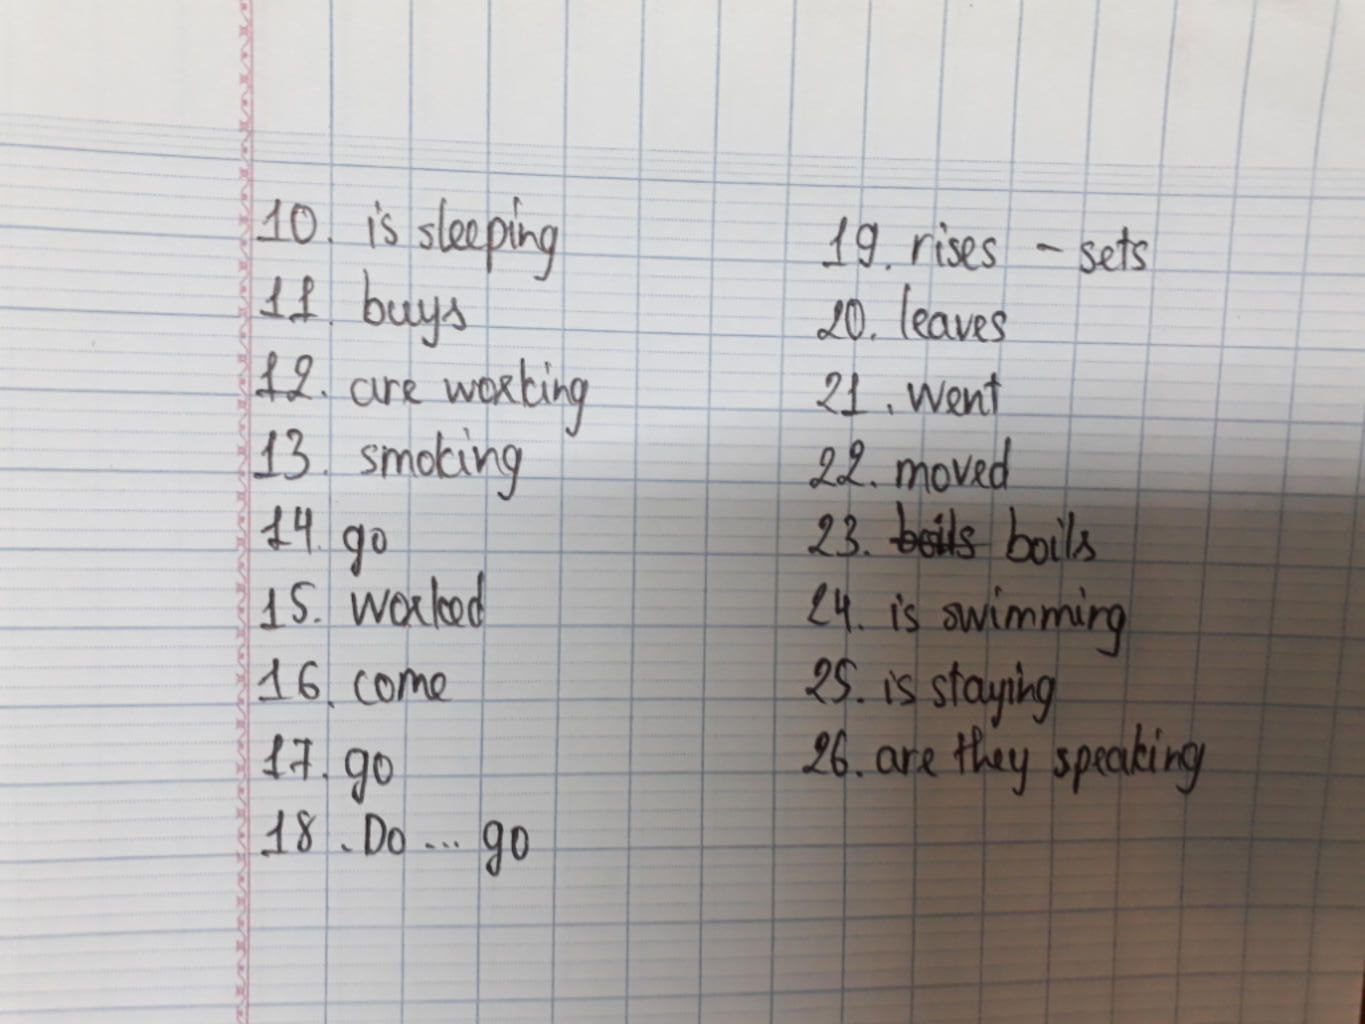 10. is sleeping
11. buys
12. are working
13. smoking
14. go
15. worked
16. come
17. go
18. Do ... go
19. rises - sets
20. leaves
21. went
22. moved
23. boils boils
24. is swimming
25. is staying
26. are they speaking